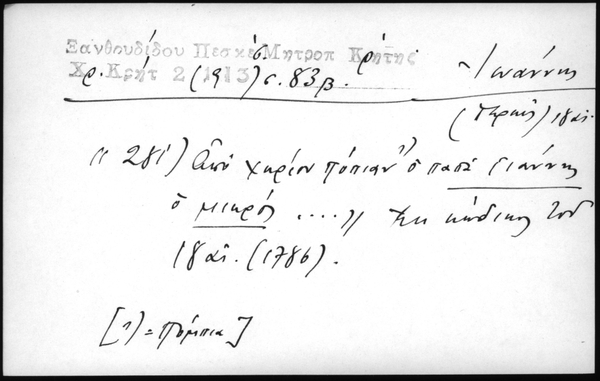 Ξανθουδίδου Πεσκέ Μητροπ Κρήτης
Χρ. Κρήτ 2 (1913) σ. 83β. Ἰωάννης
(Μικρός) 18 αἰ.
"281) Ἀπὸ χηρίον Πόπιαν ¹) ὁ παπᾶ Γιάννης
ὁ μικρός ...." Ἐκ κώδικος τοῦ
18 αἰ. (1786).
[¹) = Πόμπια]